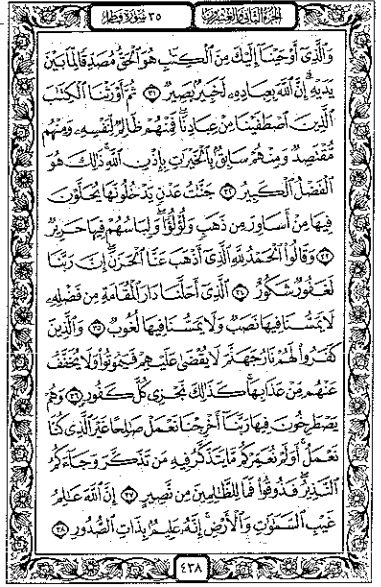 الجزء الثاني والعشرون ٣٥ سورة فاطر
وَالَّذِىٓ أَوْحَيْنَآ إِلَيْكَ مِنَ ٱلْكِتَٰبِ هُوَ ٱلْحَقُّ مُصَدِّقًا لِّمَا بَيْنَ
يَدَيْهِ إِنَّ ٱللَّهَ بِعِبَادِهِۦ لَخَبِيرٌۢ بَصِيرٌ ٣١ ثُمَّ أَوْرَثْنَا ٱلْكِتَٰبَ
ٱلَّذِينَ ٱصْطَفَيْنَا مِنْ عِبَادِنَا فَمِنْهُمْ ظَالِمٌ لِّنَفْسِهِۦ وَمِنْهُم
مُّقْتَصِدٌ وَمِنْهُمْ سَابِقٌۢ بِٱلْخَيْرَٰتِ بِإِذْنِ ٱللَّهِ ذَٰلِكَ هُوَ
ٱلْفَضْلُ ٱلْكَبِيرُ ٣٢ جَنَّٰتُ عَدْنٍ يَدْخُلُونَهَا يُحَلَّوْنَ
فِيهَا مِنْ أَسَاوِرَ مِن ذَهَبٍ وَلُؤْلُؤًا وَلِبَاسُهُمْ فِيهَا حَرِيرٌ
٣٣ وَقَالُوا۟ ٱلْحَمْدُ لِلَّهِ ٱلَّذِىٓ أَذْهَبَ عَنَّا ٱلْحَزَنَ إِنَّ رَبَّنَا
لَغَفُورٌ شَكُورٌ ٣٤ ٱلَّذِىٓ أَحَلَّنَا دَارَ ٱلْمُقَامَةِ مِن فَضْلِهِۦ
لَا يَمَسُّنَا فِيهَا نَصَبٌ وَلَا يَمَسُّنَا فِيهَا لُغُوبٌ ٣٥ وَٱلَّذِينَ
كَفَرُوا۟ لَهُمْ نَارُ جَهَنَّمَ لَا يُقْضَىٰ عَلَيْهِمْ فَيَمُوتُوا۟ وَلَا يُخَفَّفُ
عَنْهُم مِّنْ عَذَابِهَا كَذَٰلِكَ نَجْزِى كُلَّ كَفُورٍ ٣٦ وَهُمْ
يَصْطَرِخُونَ فِيهَا رَبَّنَآ أَخْرِجْنَا نَعْمَلْ صَٰلِحًا غَيْرَ ٱلَّذِى كُنَّا
نَعْمَلُ أَوَلَمْ نُعَمِّرْكُم مَّا يَتَذَكَّرُ فِيهِ مَن تَذَكَّرَ وَجَآءَكُمُ
ٱلنَّذِيرُ فَذُوقُوا۟ فَمَا لِلظَّٰلِمِينَ مِن نَّصِيرٍ ٣٧ إِنَّ ٱللَّهَ عَٰلِمُ
غَيْبِ ٱلسَّمَٰوَٰتِ وَٱلْأَرْضِ إِنَّهُۥ عَلِيمٌۢ بِذَاتِ ٱلصُّدُورِ ٣٨
٤٣٨